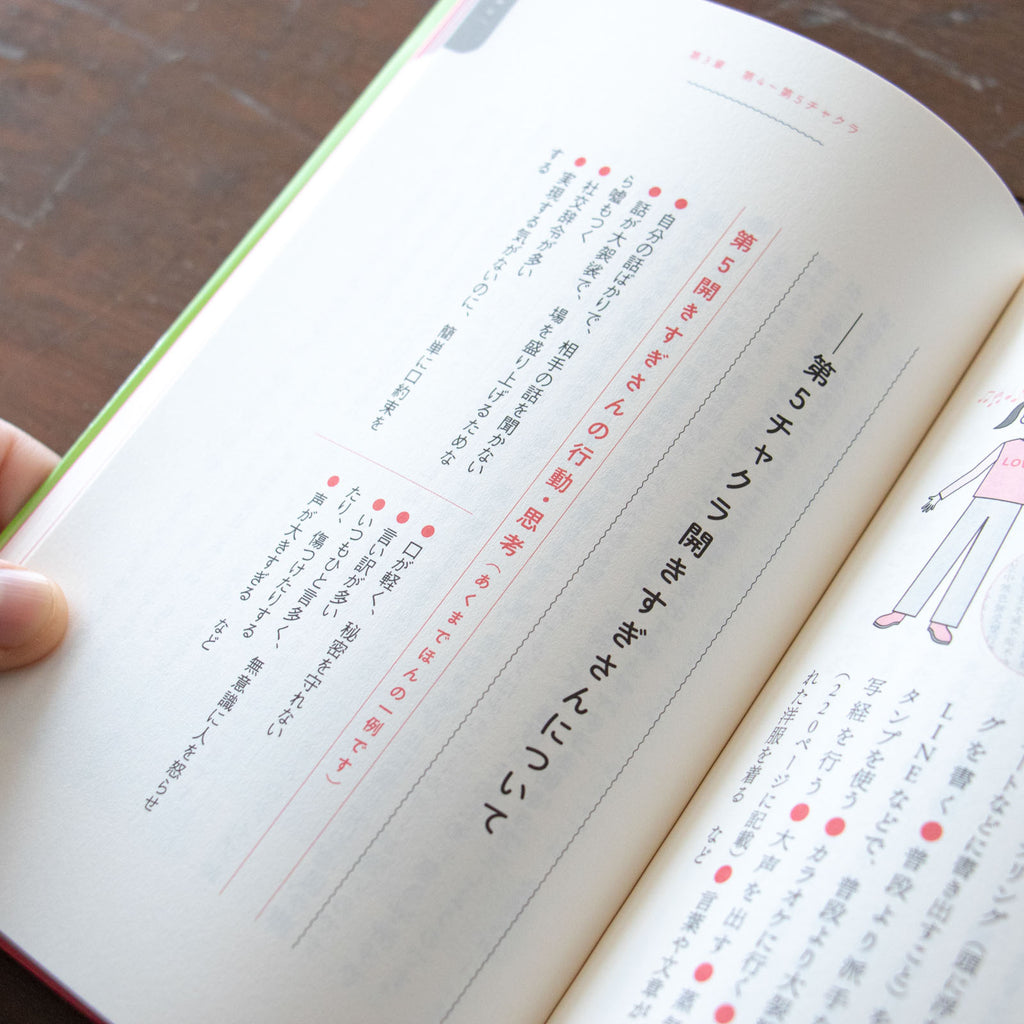 リング（頭に浮
ートなどに書き出すこと）を
グを書く ● 普段より大袈
LINEなどで、普段より派手な
タンプを使う ● カラオケに行く
写経を行う ● 大声を出す ● 蒸
（220ページに記載） ● 言葉や文章が
れた洋服を着る など
LOV
第3章 第4−第5チャクラ
―第5チャクラ開きすぎさんについて
第5開きすぎさんの行動・思考（あくまでほんの一例です）
● 自分の話ばかりで、相手の話を聞かない
● 話が大袈裟で、場を盛り上げるためな
ら嘘もつく
● 社交辞令が多い
● 実現する気がないのに、簡単に口約束を
する
● 口が軽く、秘密を守れない
● 言い訳が多い
● いつもひと言多く、無意識に人を怒らせ
たり、傷つけたりする
● 声が大きすぎる など